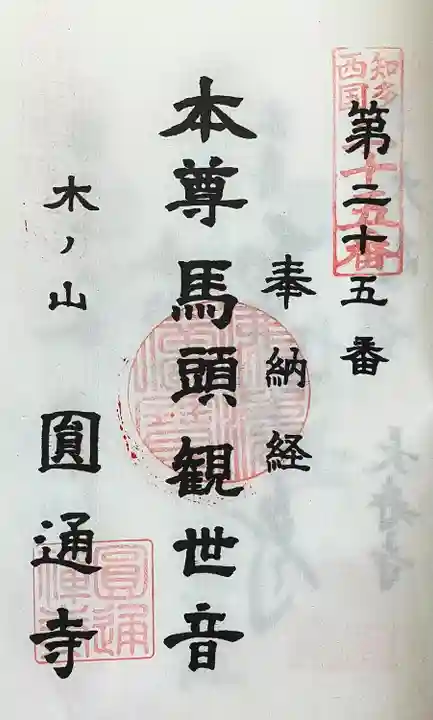 第二十五番
知多
西国
十五番
奉納経
本尊馬頭観世音
木ノ山 圓通寺
圓通